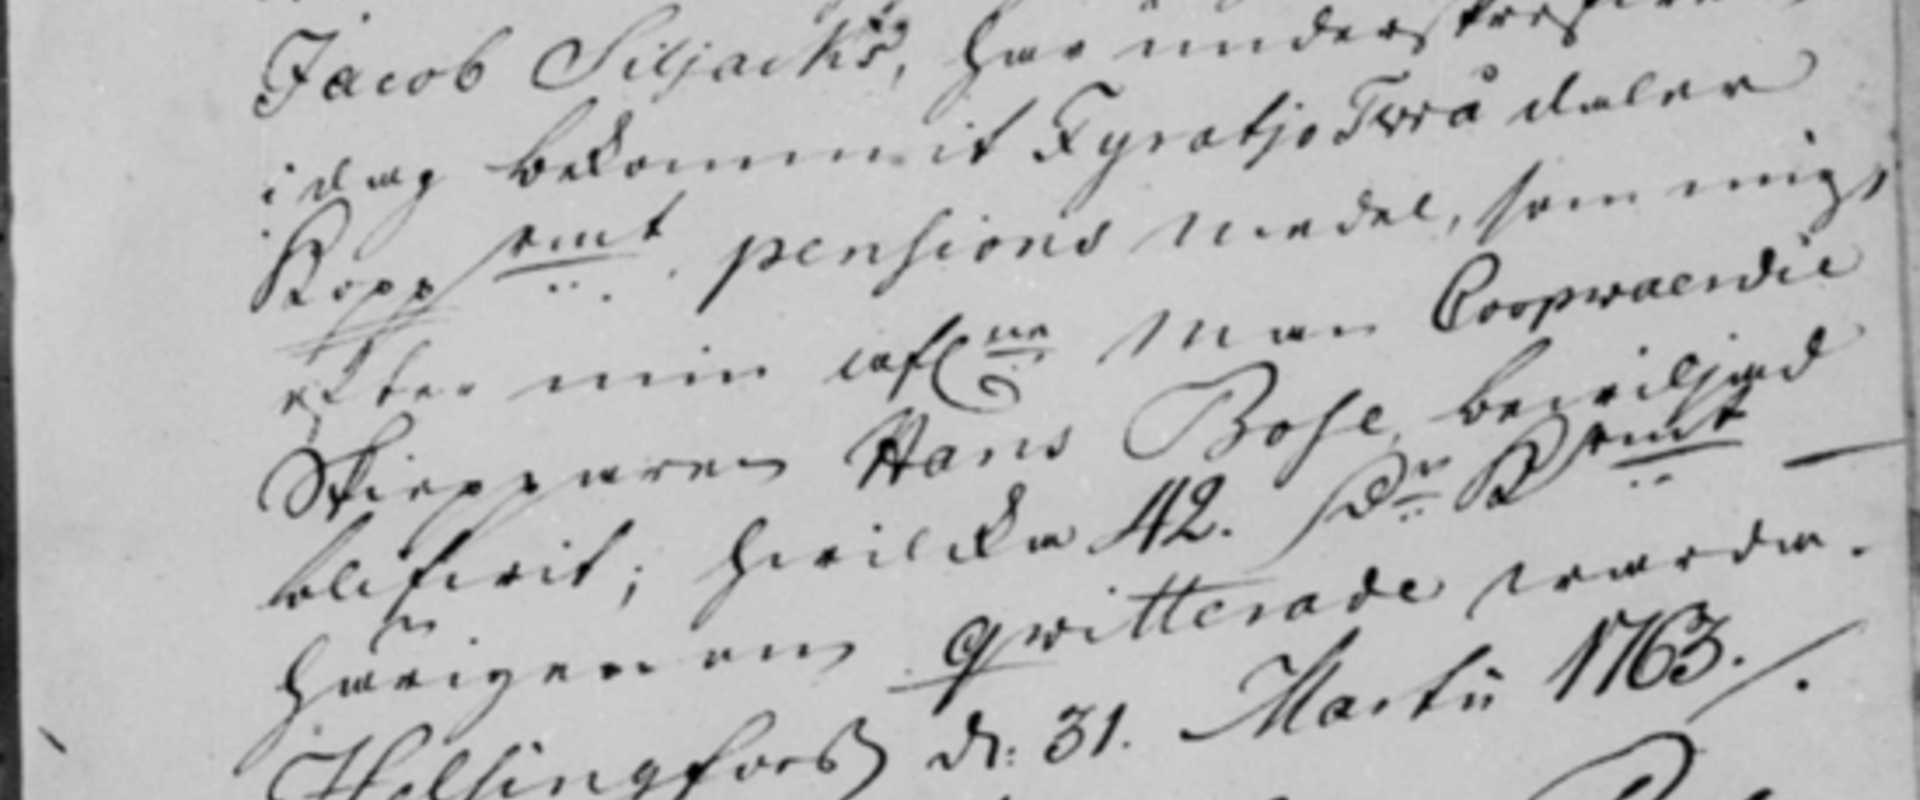 Jacob Siljacks, har underskrefne
i dag bekommit Fyratjo Twå daler
Kopp rmt. pensions medel, som mig,
efter min afl:ne Man Coopvaerdie
Skiepparen Hans Bose, bewiljad
blifwit; hwilcka 42. d:r K rmt —
härigenom qwitterade warda.
Helsingfors d: 31. Martii 1763./.